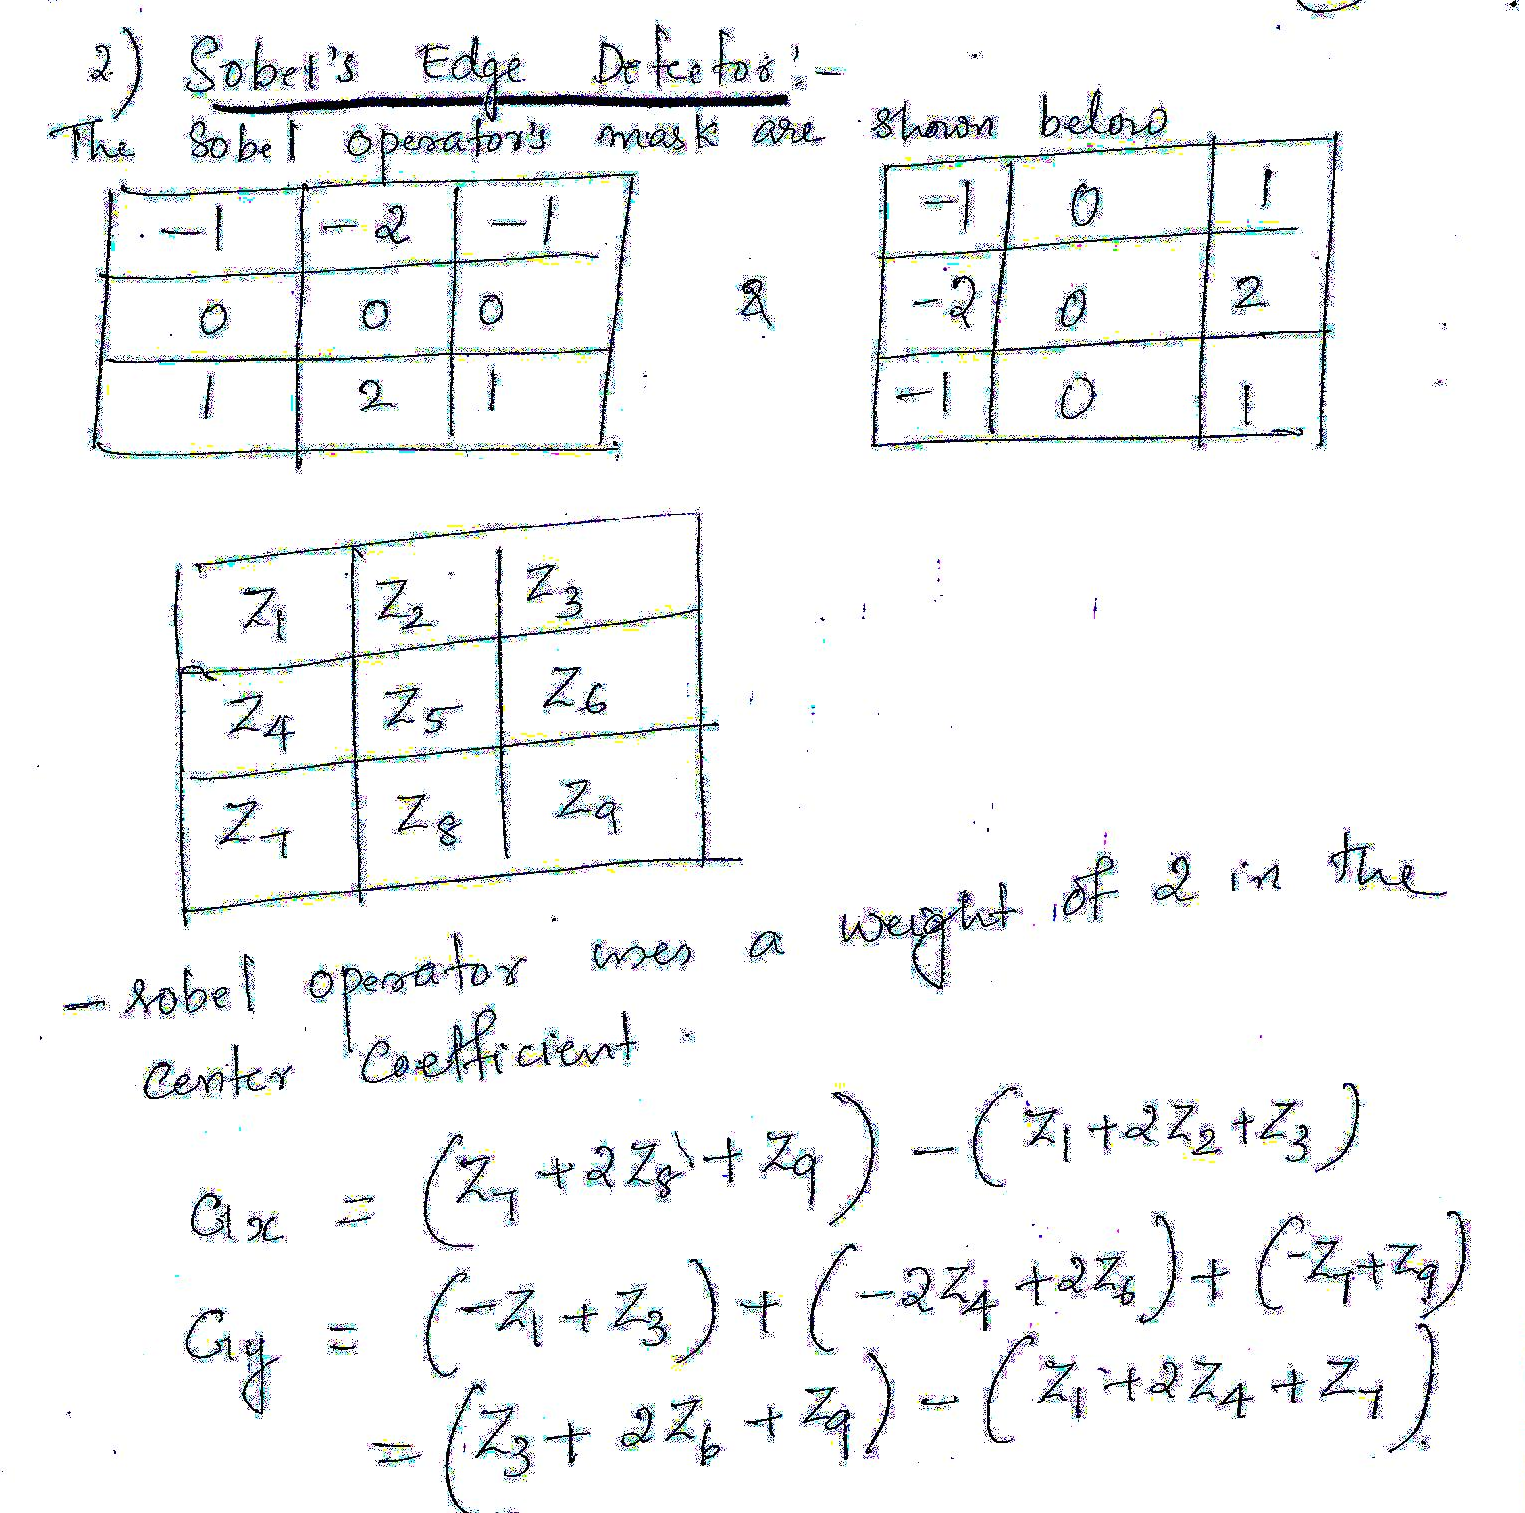 2) Sobel's Edge Detector:-
The Sobel operator's mask are shown below
-1 -2 -1
0 0 0
1 2 1
&
-1 0 1
-2 0 2
-1 0 1
Z1 Z2 Z3
Z4 Z5 Z6
Z7 Z8 Z9
- sobel operator uses a weight of 2 in the
center coefficient.
Gx = (Z7 + 2Z8 + Z9) - (Z1 + 2Z2 + Z3)
Gy = (-Z1 + Z3) + (-2Z4 + 2Z6) + (-Z7 + Z9)
= (Z3 + 2Z6 + Z9) - (Z1 + 2Z4 + Z7)